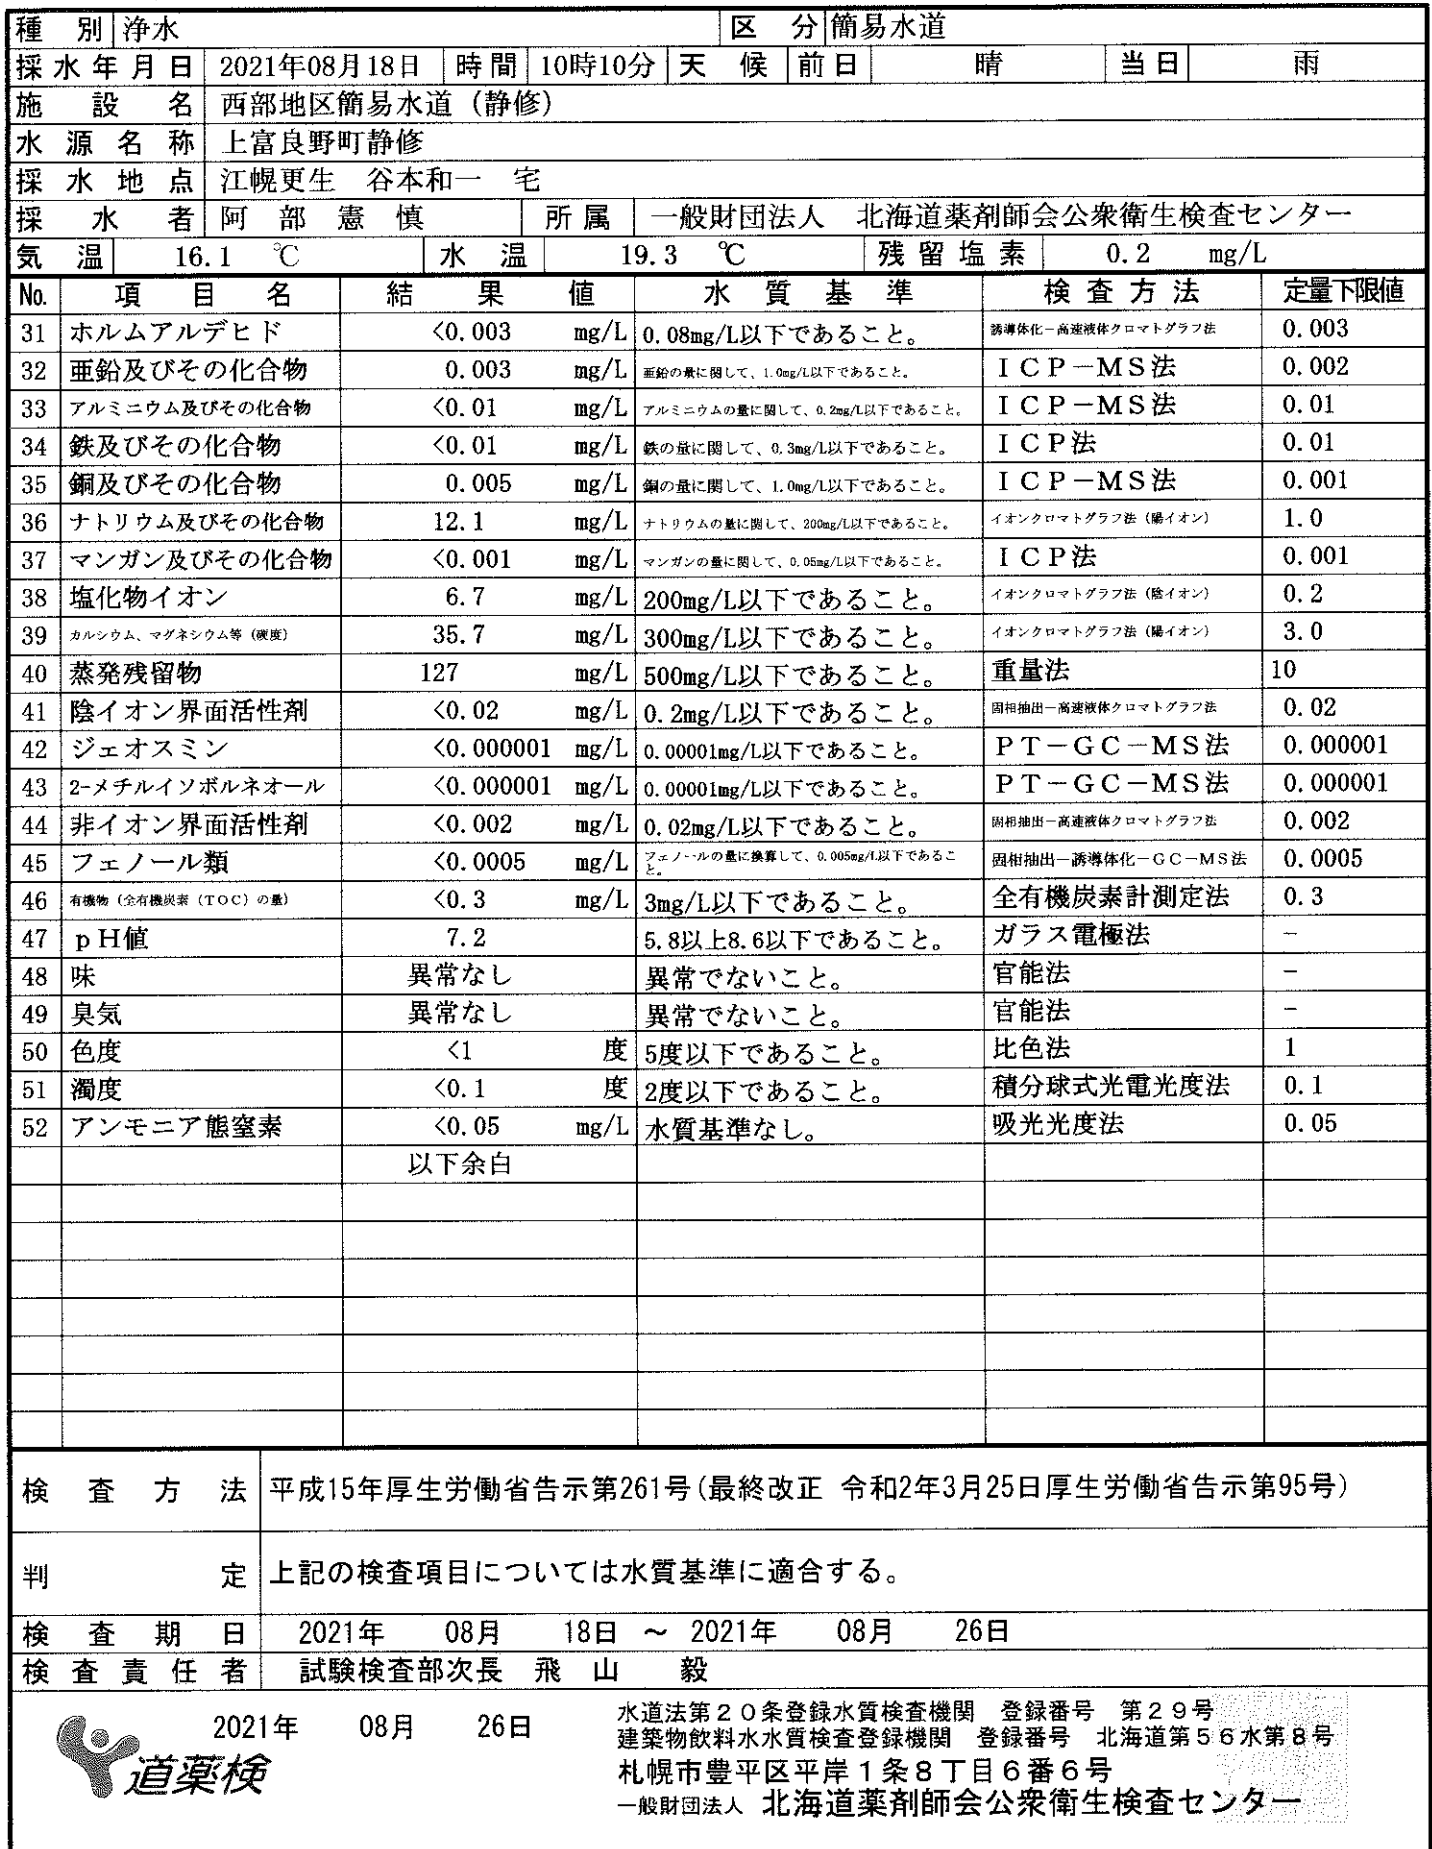 種別 浄水 区分 簡易水道
採水年月日 2021年08月18日 時間 10時10分 天候 前日 晴 当日 雨
施設名 西部地区簡易水道（静修）
水源名称 上富良野町静修
採水地点 江幌更生 谷本和一 宅
採水者 阿部憲慎 所属 一般財団法人 北海道薬剤師会公衆衛生検査センター
気温 16.1 ℃ 水温 19.3 ℃ 残留塩素 0.2 mg/L
No. 項目名 結果値 水質基準 検査方法 定量下限値
31 ホルムアルデヒド <0.003 mg/L 0.08mg/L以下であること。 誘導体化－高速液体クロマトグラフ法 0.003
32 亜鉛及びその化合物 0.003 mg/L 亜鉛の量に関して、1.0mg/L以下であること。 ＩＣＰ－ＭＳ法 0.002
33 アルミニウム及びその化合物 <0.01 mg/L アルミニウムの量に関して、0.2mg/L以下であること。 ＩＣＰ－ＭＳ法 0.01
34 鉄及びその化合物 <0.01 mg/L 鉄の量に関して、0.3mg/L以下であること。 ＩＣＰ法 0.01
35 銅及びその化合物 0.005 mg/L 銅の量に関して、1.0mg/L以下であること。 ＩＣＰ－ＭＳ法 0.001
36 ナトリウム及びその化合物 12.1 mg/L ナトリウムの量に関して、200mg/L以下であること。 イオンクロマトグラフ法（陽イオン） 1.0
37 マンガン及びその化合物 <0.001 mg/L マンガンの量に関して、0.05mg/L以下であること。 ＩＣＰ法 0.001
38 塩化物イオン 6.7 mg/L 200mg/L以下であること。 イオンクロマトグラフ法（陰イオン） 0.2
39 カルシウム、マグネシウム等（硬度） 35.7 mg/L 300mg/L以下であること。 イオンクロマトグラフ法（陽イオン） 3.0
40 蒸発残留物 127 mg/L 500mg/L以下であること。 重量法 10
41 陰イオン界面活性剤 <0.02 mg/L 0.2mg/L以下であること。 固相抽出－高速液体クロマトグラフ法 0.02
42 ジェオスミン <0.000001 mg/L 0.00001mg/L以下であること。 ＰＴ－ＧＣ－ＭＳ法 0.000001
43 2-メチルイソボルネオール <0.000001 mg/L 0.00001mg/L以下であること。 ＰＴ－ＧＣ－ＭＳ法 0.000001
44 非イオン界面活性剤 <0.002 mg/L 0.02mg/L以下であること。 固相抽出－高速液体クロマトグラフ法 0.002
45 フェノール類 <0.0005 mg/L フェノールの量に換算して、0.005mg/L以下であること。 固相抽出－誘導体化－ＧＣ－ＭＳ法 0.0005
46 有機物（全有機炭素（ＴＯＣ）の量） <0.3 mg/L 3mg/L以下であること。 全有機炭素計測定法 0.3
47 ｐＨ値 7.2 5.8以上8.6以下であること。 ガラス電極法 －
48 味 異常なし 異常でないこと。 官能法 －
49 臭気 異常なし 異常でないこと。 官能法 －
50 色度 <1 度 5度以下であること。 比色法 1
51 濁度 <0.1 度 2度以下であること。 積分球式光電光度法 0.1
52 アンモニア態窒素 <0.05 mg/L 水質基準なし。 吸光光度法 0.05
以下余白
検査方法 平成15年厚生労働省告示第261号(最終改正 令和2年3月25日厚生労働省告示第95号)
判定 上記の検査項目については水質基準に適合する。
検査期日 2021年 08月 18日 ～ 2021年 08月 26日
検査責任者 試験検査部次長 飛山 毅
水道法第２０条登録水質検査機関 登録番号 第２９号
2021年 08月 26日
建築物飲料水水質検査登録機関 登録番号 北海道第５６水第８号
道薬検
札幌市豊平区平岸１条８丁目６番６号
一般財団法人 北海道薬剤師会公衆衛生検査センター